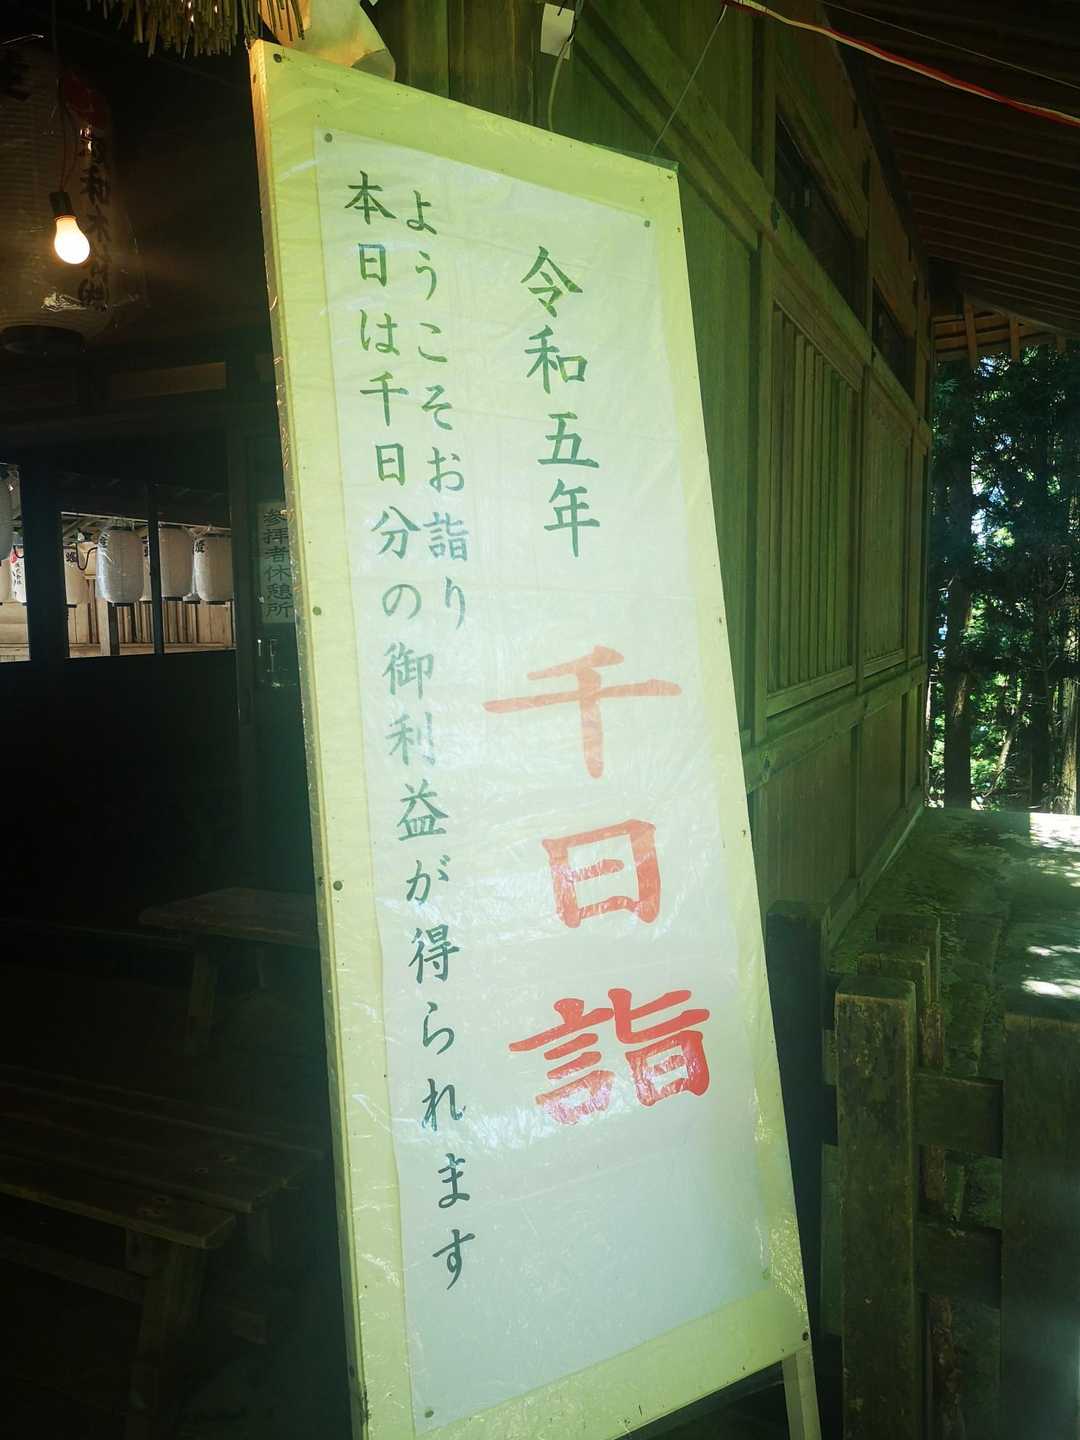 令和五年 千日詣
ようこそお詣り
本日は千日分の御利益が得られます
参拝者休憩所